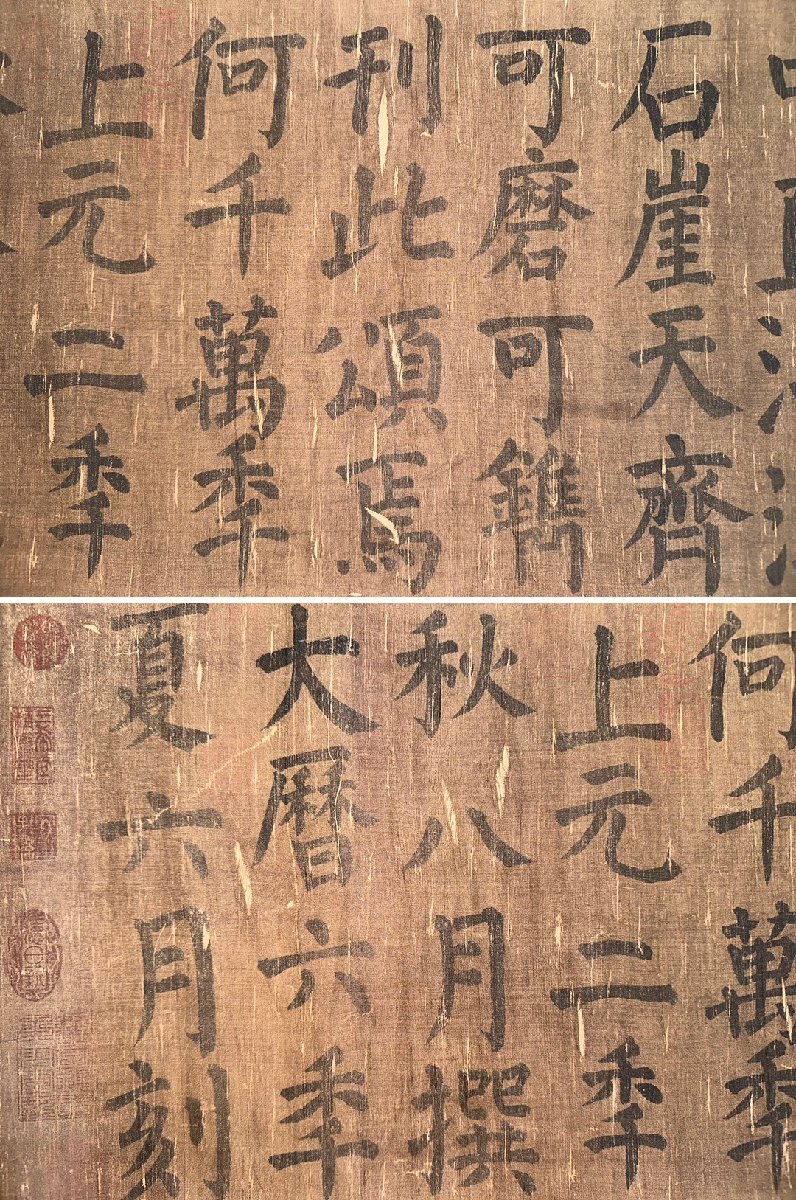 石崖天齊
可磨可鐫
刊此頌焉
何千萬秊
上元二秊
何千萬秊
上元二秊
秋八月撰
大曆六秊
夏六月刻